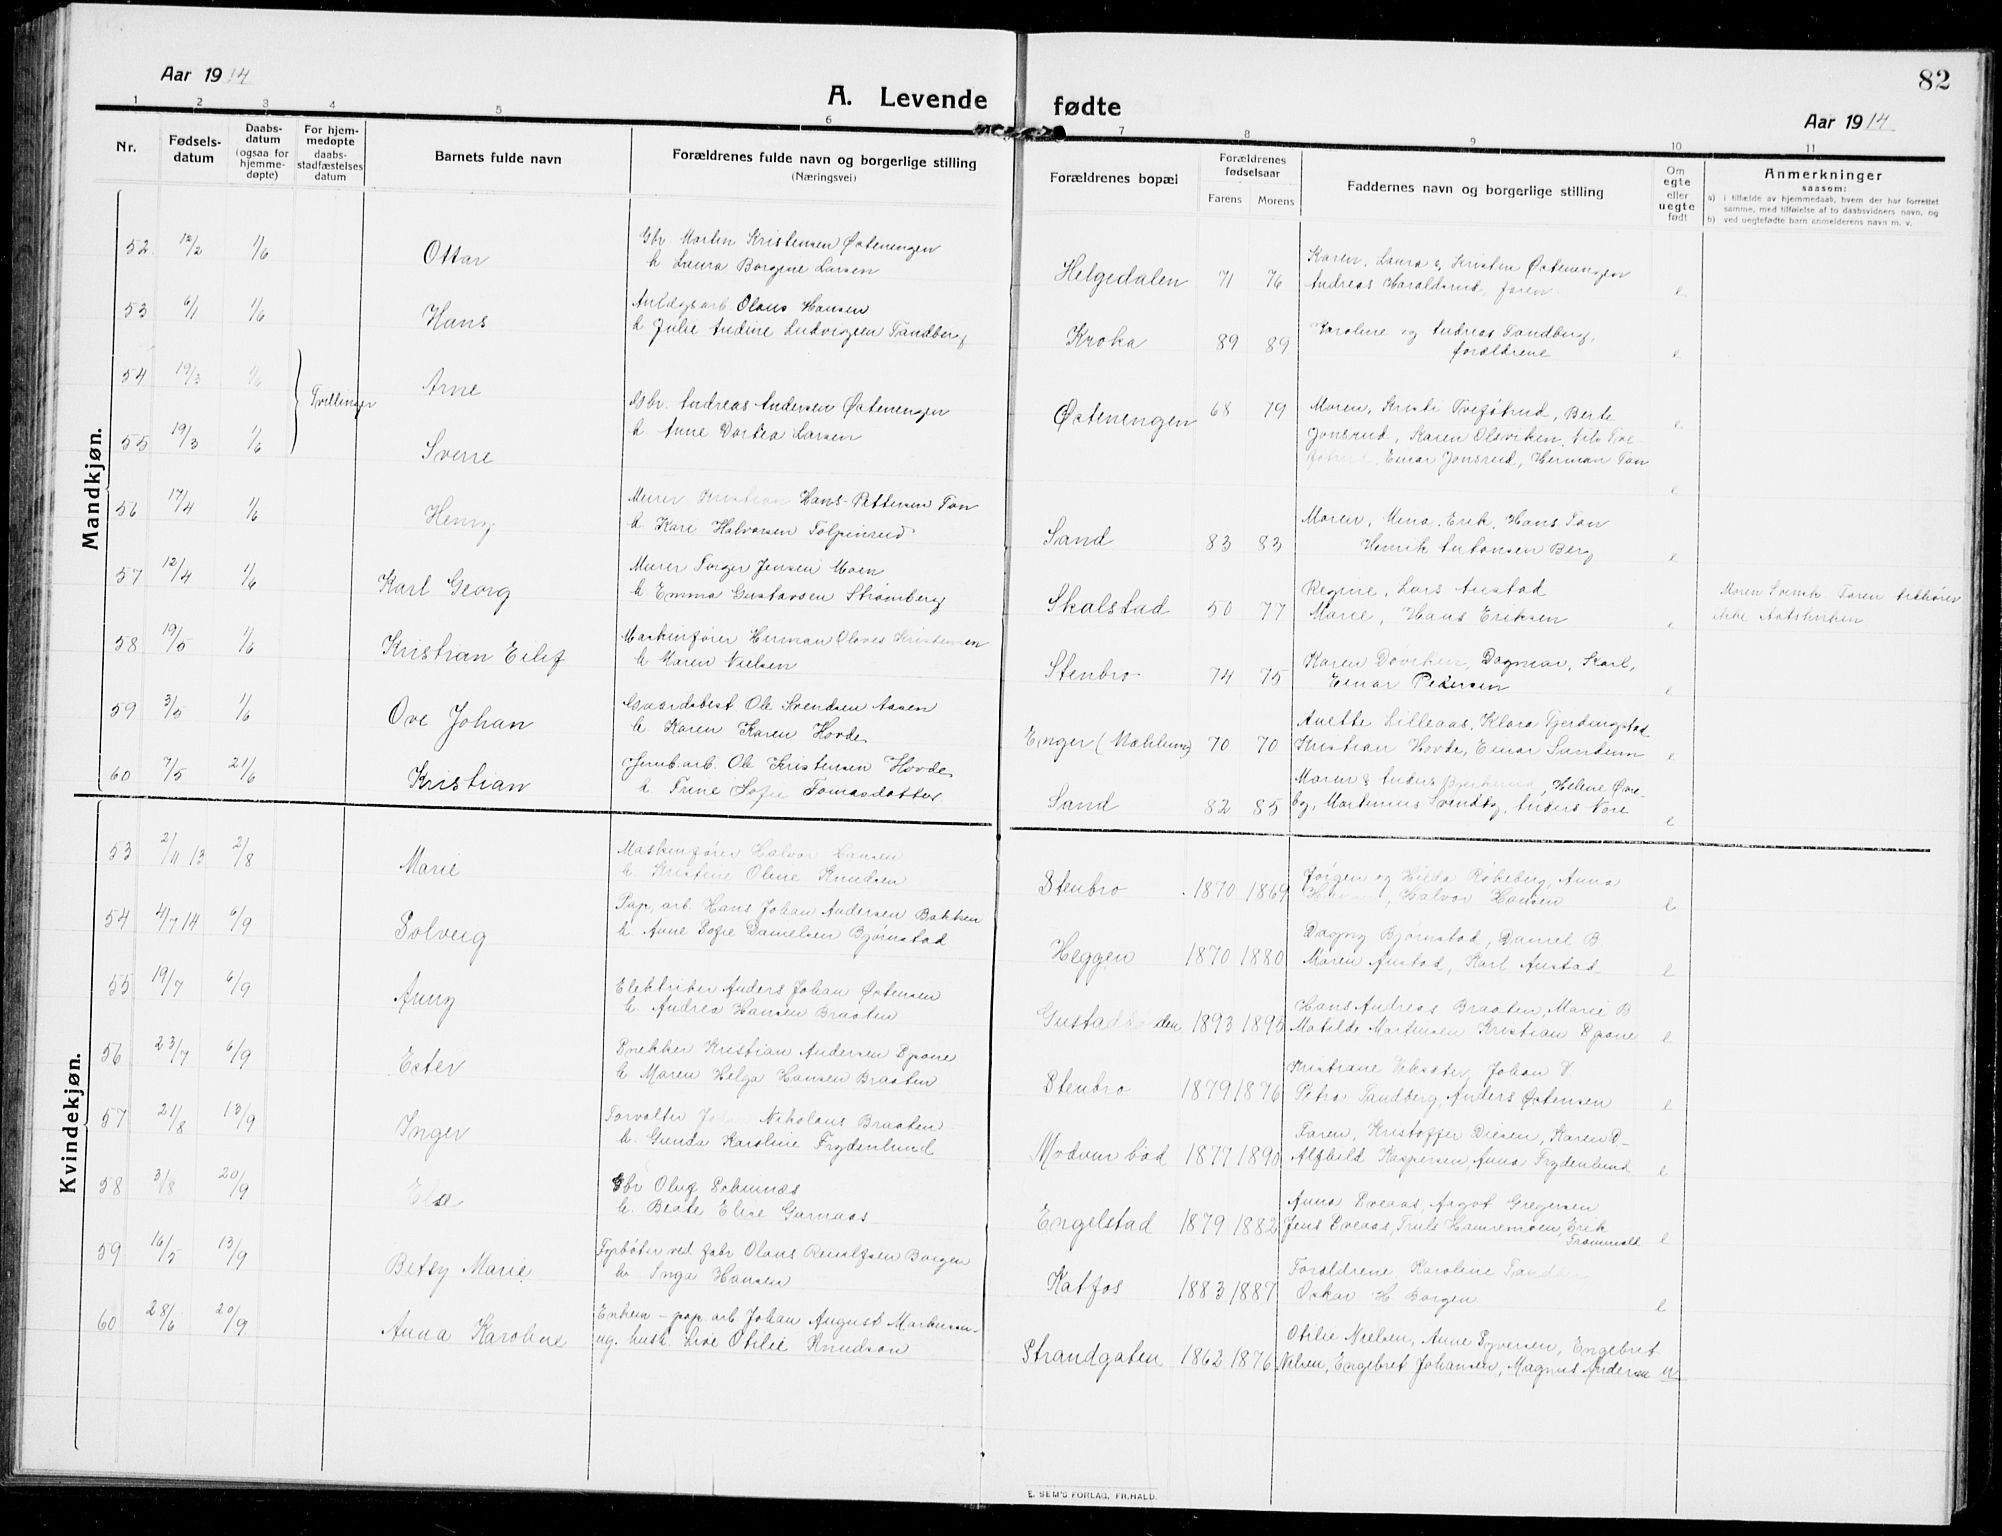 Aar 1914
A. Levende fødte
Aar 1914
82
1 2 3 4 5 6 7 8 9 10 11
Nr.
Fødselsdatum
Daabsdatum (ogsaa for hjemmedøpte)
For hjemmedøpte daabsstadfæstelses datum
Barnets fulde navn
Forældrenes fulde navn og borgerlige stilling
(Næringsvei)
Forældrenes bopæl
Forældrenes fødselsaar
Farens Morens
Faddernes navn og borgerlige stilling
Om egte eller uegte født
Anmerkninger
saasom:
a) i tilfælde av hjemmedaab, hvem der har forrettet samme, med tilføielse av to daabsvidners navn, og
b) ved uegtefødte barn anmelderens navn m. v.
Mandkjøn.
52 12/2 1/6 Ottar
Gbr. Morten Kristensen Østenengen
h. Laura Borgine Larsen
Helgedalen 71 76
Karen, Laura og Kristen Østenengen
Andreas Haraldsrud, faren e
53 6/1 1/6 Hans
Anlægsarb Olaus Hansen
h Julie Andine Ludvigsen Tandberg
Kroka 89 89
Karoline og Andreas Tandberg,
forældrene e
54 19/3 1/6 Tvillinger Arne
55 19/3 1/6 Sverre
Gbr. Andreas Andersen Østenengen
h. Anne Dortea Larsen
Østenengen 68 79
Moren, Kristi, Berte
Jonsrud, Karen Olsviken, Nils
Einar Jonsrud, Herman Ton
e
e
56 17/4 1/6 Henry
Murer Kristian Hans-Pettersen Ton
h. Kari Halvorsen
Sand 83 83
Moren, Mina, Erik, Hans Ton
Henrik Antonsen Berg e
57 12/4 1/6 Karl Georg
Murer Torger Jensen Moen
h. Emma Gustavsen Strømberg
Skalstad 50 77
Regine, Lars Austad
Marie, Hans Eriksen e
Moren Svensk. Faren tilhører
ikke Statskirken
58 19/5 1/6 Kristian Eilif
Maskinfører Herman Olaves Kristensen
h Maren Nielsen
Stenbro 74 75
Karen Døviken, Dagmar, Karl,
Einar Pedersen e
59 3/5 1/6 Ove Johan
Gaardsbest Ole Svendsen Aasen
h Karen Karen Hovde
Enger (Mæhlum) 70 70
Anette Lilleaas, Klara Fjerdingstad
Kristian Hovde, Einar Sundum e
60 7/5 21/6 Kristian
Jernb.arb. Ole Kristensen Hovde
h. Trine Sofie Tomasdatter
Sand 82 85
Maren & Anders, Helene Øvre-
by, Martinius Svendby, Anders Nore e
Kvindekjøn.
53 2/11 13 2/8 Marie
Maskinfører Halvor Hansen
h Kristine Oline Knudsen
Stenbro 1870 1869
Jørgen og Hilda Røkeberg, Anna
Halvor Hansen e
54 4/7 14 6/9 Solveig
Pap. arb. Hans Johan Andersen Bakken
h. Anne Sofie Danielsen Bjørnstad
Heggen 1870 1880
Dagny Bjørnstad, Daniel B
Maren Austad, Karl Austad e
55 19/7 6/9 Anny
Elektriker Anders Johan Østensen
h. Andrea Hansen Braaten
1893 1895
Hans Andreas Braaten, Marie B
Matilde Martinsen Kristian Spone e
56 23/7 6/9 Ester
Snekker Kristian Andersen Spone
h Maren Helga Hansen Braaten
Stenbro 1879 1876
Kristiane, Johan V
Petra Tandberg, Anders Østensen e
57 21/8 13/9 Inger
Forvalter Johan Nikolaus Braaten
h. Gunda Karoline Frydenlund
Modum bad 1877 1890
Faren, Kristoffer Diesen, Karen D-
Alfhild Kaspersen, Anna Frydenlund e
58 3/8 20/9 Else
Gbr Oluf
h. Beate Elise Garnaas
Engelstad 1879 1882
Anna Sveaas, Aagot Gregersen
Jens Sveaas, Truls Hamremoen, Erik
e
59 16/5 13/9 Betsy Marie
Fyrbøter ved fabr Olaus Borgen
h. Inga Hansen
Katfos 1883 1887
Forældrene, Karoline
Oskar H Borgen e
60 28/6 20/9 Anna Karoline
Enkem – pap arb Johan August
ug. hush. Live Otilie Knudson
Strandgaten 1862 1876
Otilie Nielsen, Anne Syversen, Engebret
Nilsen, Engebret Johansen, Magnus Andersen u
E. SEM'S FORLAG, FR.HALD.